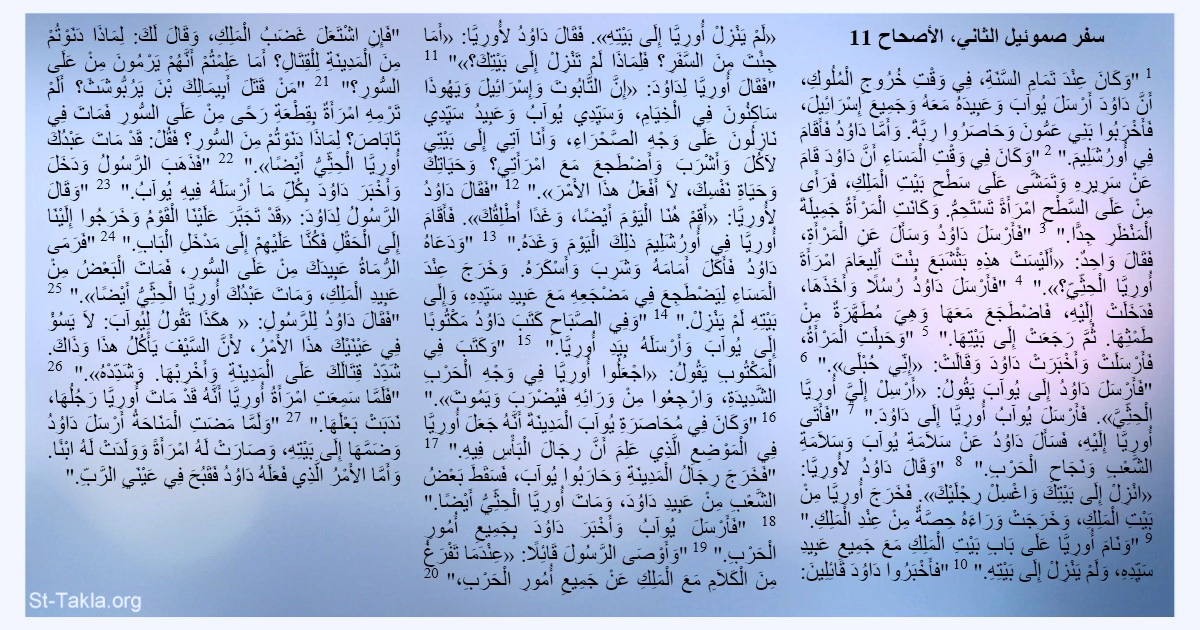 سفر صموئيل الثاني، الأصحاح 11
1 "وَكَانَ عِنْدَ تَمَامِ السَّنَةِ، فِي وَقْتِ خُرُوجِ الْمُلُوكِ،
أَنَّ دَاوُدَ أَرْسَلَ يُوآبَ وَعَبِيدَهُ مَعَهُ وَجَمِيعَ إِسْرَائِيلَ،
فَأَخْرَبُوا بَنِي عَمُّونَ وَحَاصَرُوا رِبَّةَ. وَأَمَّا دَاوُدُ فَأَقَامَ
فِي أُورُشَلِيمَ." 2 "وَكَانَ فِي وَقْتِ الْمَسَاءِ أَنَّ دَاوُدَ قَامَ
عَنْ سَرِيرِهِ وَتَمَشَّى عَلَى سَطْحِ بَيْتِ الْمَلِكِ، فَرَأَى
مِنْ عَلَى السَّطْحِ امْرَأَةً تَسْتَحِمُّ. وَكَانَتِ الْمَرْأَةُ جَمِيلَةَ
الْمَنْظَرِ جِدًّا." 3 "فَأَرْسَلَ دَاوُدُ وَسَأَلَ عَنِ الْمَرْأَةِ،
فَقَالَ وَاحِدٌ: «أَلَيْسَتْ هذِهِ بَثْشَبَعَ بِنْتَ أَلِيعَامَ امْرَأَةَ
أُورِيَّا الْحِثِّيِّ؟»." 4 "فَأَرْسَلَ دَاوُدُ رُسُلًا وَأَخَذَهَا،
فَدَخَلَتْ إِلَيْهِ، فَاضْطَجَعَ مَعَهَا وَهِيَ مُطَهَّرَةٌ مِنْ
طَمْثِهَا. ثُمَّ رَجَعَتْ إِلَى بَيْتِهَا." 5 "وَحَبِلَتِ الْمَرْأَةُ،
فَأَرْسَلَتْ وَأَخْبَرَتْ دَاوُدَ وَقَالَتْ: «إِنِّي حُبْلَى»." 6
"فَأَرْسَلَ دَاوُدُ إِلَى يُوآبَ يَقُولُ: «أَرْسِلْ إِلَيَّ أُورِيَّا
الْحِثِّيَّ». فَأَرْسَلَ يُوآبُ أُورِيَّا إِلَى دَاوُدَ." 7 "فَأَتَى
أُورِيَّا إِلَيْهِ، فَسَأَلَ دَاوُدُ عَنْ سَلاَمَةِ يُوآبَ وَسَلاَمَةِ
الشَّعْبِ وَنَجَاحِ الْحَرْبِ." 8 "وَقَالَ دَاوُدُ لأُورِيَّا:
«انْزِلْ إِلَى بَيْتِكَ وَاغْسِلْ رِجْلَيْكَ». فَخَرَجَ أُورِيَّا مِنْ
بَيْتِ الْمَلِكِ، وَخَرَجَتْ وَرَاءَهُ حِصَّةٌ مِنْ عِنْدِ الْمَلِكِ."
9 "وَنَامَ أُورِيَّا عَلَى بَابِ بَيْتِ الْمَلِكِ مَعَ جَمِيعِ عَبِيدِ
سَيِّدِهِ، وَلَمْ يَنْزِلْ إِلَى بَيْتِهِ." 10 "فأَخْبَرُوا دَاوُدَ قَائِلِينَ:
«لَمْ يَنْزِلْ أُورِيَّا إِلَى بَيْتِهِ». فَقَالَ دَاوُدُ لأُورِيَّا: «أَمَا
جِئْتَ مِنَ السَّفَرِ؟ فَلِمَاذَا لَمْ تَنْزِلْ إِلَى بَيْتِكَ؟»" 11
"فَقَالَ أُورِيَّا لِدَاوُدَ: «إِنَّ التَّابُوتَ وَإِسْرَائِيلَ وَيَهُوذَا
سَاكِنُونَ فِي الْخِيَامِ، وَسَيِّدِي يُوآبُ وَعَبِيدُ سَيِّدِي
نَازِلُونَ عَلَى وَجْهِ الصَّحْرَاءِ، وَأَنَا آتِي إِلَى بَيْتِي
لآكُلَ وَأَشْرَبَ وَأَضْطَجعَ مَعَ امْرَأَتِي؟ وَحَيَاتِكَ
وَحَيَاةِ نَفْسِكَ، لاَ أَفْعَلُ هذَا الأَمْرَ»." 12 "فَقَالَ دَاوُدُ
لأُورِيَّا: «أَقِمْ هُنَا الْيَوْمَ أَيْضًا، وَغَدًا أُطْلِقُكَ». فَأَقَامَ
أُورِيَّا فِي أُورُشَلِيمَ ذلِكَ الْيَوْمَ وَغَدَهُ." 13 "وَدَعَاهُ
دَاوُدُ فَأَكَلَ أَمَامَهُ وَشَرِبَ وَأَسْكَرَهُ. وَخَرَجَ عِنْدَ
الْمَسَاءِ لِيَضْطَجِعَ فِي مَضْجَعِهِ مَعَ عَبِيدِ سَيِّدِهِ، وَإِلَى
بَيْتِهِ لَمْ يَنْزِلْ." 14 "وَفِي الصَّبَاحِ كَتَبَ دَاوُدُ مَكْتُوبًا
إِلَى يُوآبَ وَأَرْسَلَهُ بِيَدِ أُورِيَّا." 15 "وَكَتَبَ فِي
الْمَكْتُوبِ يَقُولُ: «اجْعَلُوا أُورِيَّا فِي وَجْهِ الْحَرْبِ
الشَّدِيدَةِ، وَارْجِعُوا مِنْ وَرَائِهِ فَيُضْرَبَ وَيَمُوتَ»."
16 "وَكَانَ فِي مُحَاصَرَةِ يُوآبَ الْمَدِينَةَ أَنَّهُ جَعَلَ أُورِيَّا
فِي الْمَوْضِعِ الَّذِي عَلِمَ أَنَّ رِجَالَ الْبَأْسِ فِيهِ." 17
"فَخَرَجَ رِجَالُ الْمَدِينَةِ وَحَارَبُوا يُوآبَ، فَسَقَطَ بَعْضُ
الشَّعْبِ مِنْ عَبِيدِ دَاوُدَ، وَمَاتَ أُورِيَّا الْحِثِّيُّ أَيْضًا."
18 "فَأَرْسَلَ يُوآبُ وَأَخْبَرَ دَاوُدَ بِجَمِيعِ أُمُورِ
الْحَرْبِ." 19 "وَأَوْصَى الرَّسُولَ قَائِلًا: «عِنْدَمَا تَفْرَغُ
مِنَ الْكَلاَمِ مَعَ الْمَلِكِ عَنْ جَمِيعِ أُمُورِ الْحَرْبِ،" 20
"فَإِنِ اشْتَعَلَ غَضَبُ الْمَلِكِ، وَقَالَ لَكَ: لِمَاذَا دَنَوْتُمْ
مِنَ الْمَدِينَةِ لِلْقِتَالِ؟ أَمَا عَلِمْتُمْ أَنَّهُمْ يَرْمُونَ مِنْ عَلَى
السُّورِ؟" 21 "مَنْ قَتَلَ أَبِيمَالِكَ بْنَ يَرُبُّوشَثَ؟ أَلَمْ
تَرْمِهِ امْرَأَةٌ بِقِطْعَةِ رَحًى مِنْ عَلَى السُّورِ فَمَاتَ فِي
تَابَاصَ؟ لِمَاذَا دَنَوْتُمْ مِنَ السُّورِ؟ فَقُلْ: قَدْ مَاتَ عَبْدُكَ
أُورِيَّا الْحِثِّيُّ أَيْضًا»." 22 "فَذَهَبَ الرَّسُولُ وَدَخَلَ
وَأَخْبَرَ دَاوُدَ بِكُلِّ مَا أَرْسَلَهُ فِيهِ يُوآبُ." 23 "وَقَالَ
الرَّسُولُ لِدَاوُدَ: «قَدْ تَجَبَّرَ عَلَيْنَا الْقَوْمُ وَخَرَجُوا إِلَيْنَا
إِلَى الْحَقْلِ فَكُنَّا عَلَيْهِمْ إِلَى مَدْخَلِ الْبَابِ." 24 "فَرَمَى
الرُّمَاةُ عَبِيدَكَ مِنْ عَلَى السُّورِ، فَمَاتَ الْبَعْضُ مِنْ
عَبِيدِ الْمَلِكِ، وَمَاتَ عَبْدُكَ أُورِيَّا الْحِثِّيُّ أَيْضًا»." 25
"فَقَالَ دَاوُدُ لِلرَّسُولِ: « هكَذَا تَقُولُ لِيُوآبَ: لاَ يَسُؤْ
فِي عَيْنَيْكَ هذَا الأَمْرُ، لأَنَّ السَّيْفَ يَأْكُلُ هذَا وَذَاكَ.
شَدِّدْ قِتَالَكَ عَلَى الْمَدِينَةِ وَأَخْرِبْهَا. وَشَدِّدْهُ»." 26
"فَلَمَّا سَمِعَتِ امْرَأَةُ أُورِيَّا أَنَّهُ قَدْ مَاتَ أُورِيَّا رَجُلُهَا،
نَدَبَتْ بَعْلَهَا." 27 "وَلَمَّا مَضَتِ الْمَنَاحَةُ أَرْسَلَ دَاوُدُ
وَضَمَّهَا إِلَى بَيْتِهِ، وَصَارَتْ لَهُ امْرَأَةً وَوَلَدَتْ لَهُ ابْنًا.
وَأَمَّا الأَمْرُ الَّذِي فَعَلَهُ دَاوُدُ فَقَبُحَ فِي عَيْنَيِ الرَّبِّ."
St-Takla.org